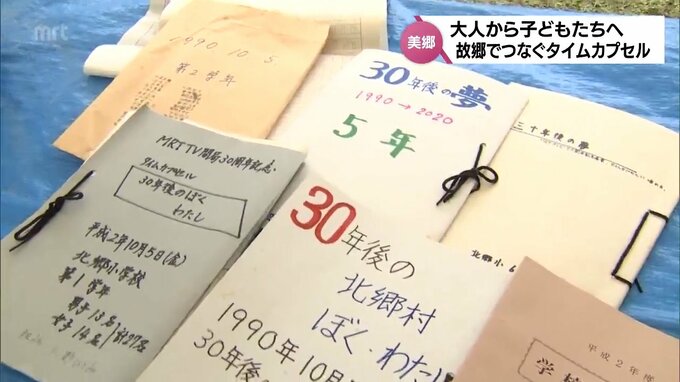 mrt
美郷
大人から子どもたちへ
故郷でつなぐタイムカプセル
1990.10.5
第2学年
30年後の夢
1990→2020
5年
三十年後の夢
北郷小6
MRT TV開局30周年記念
タイムカプセル
30年後のぼく
わたし
平成2年10月5日(金)
北郷小学校
第1学年
男子13名
女子14名
計27名
30年後の
北郷村
ぼく・わたし
1990年10月
30年後
平成2年度
学校